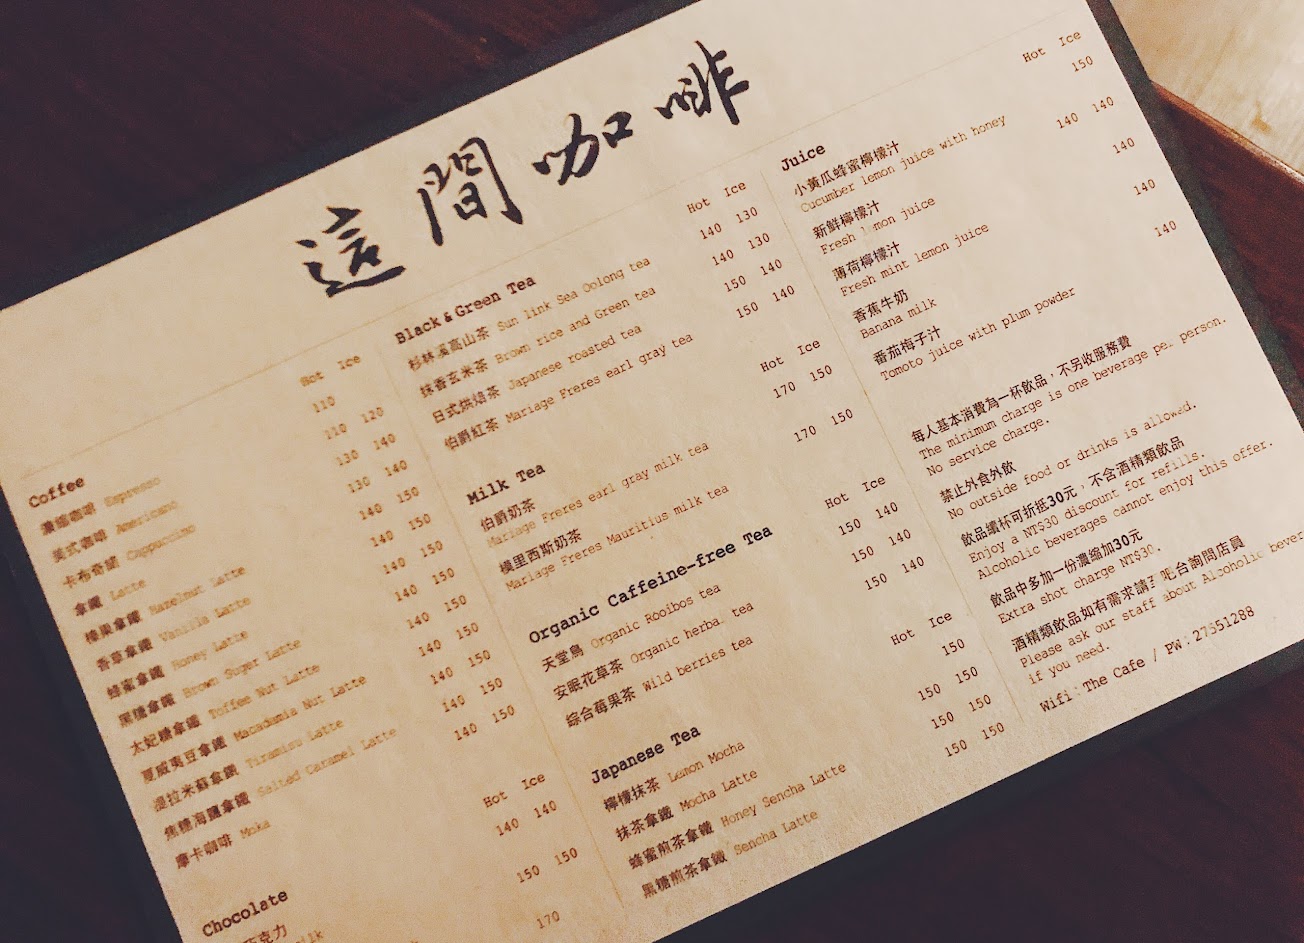 這間咖啡
Coffee
Hot Ice
濃縮咖啡 Espresso 110
美式咖啡 Americano 110 120
卡布奇諾 Cappuccino 130 140
拿鐵 Latte 130 140
榛果拿鐵 Hazelnut Latte 140 150
香草拿鐵 Vanilla Latte 140 150
蜂蜜拿鐵 Honey Latte 140 150
黑糖拿鐵 Brown Sugar Latte 140 150
太妃糖拿鐵 Toffee Nut Latte 140 150
夏威夷豆拿鐵 Macadamia Nut Latte 140 150
提拉米蘇拿鐵 Tiramisu Latte 140 150
焦糖海鹽拿鐵 Salted Caramel Latte 140 150
摩卡咖啡 Moka 140 150
Chocolate
Hot Ice
140 140
巧克力
150 150
170
Black & Green Tea
Hot Ice
杉林溪高山茶 Sun link Sea Oolong tea 140 130
抹香玄米茶 Brown rice and Green tea 140 130
日式烘焙茶 Japanese roasted tea 150 140
伯爵紅茶 Mariage Freres earl gray tea 150 140
Milk Tea
Hot Ice
伯爵奶茶 170 150
Mariage Freres earl gray milk tea
模里西斯奶茶 170 150
Mariage Freres Mauritius milk tea
Organic Caffeine-free Tea
Hot Ice
天堂鳥 Organic Rooibos tea 150 140
安眠花草茶 Organic herbal tea 150 140
綜合莓果茶 Wild berries tea 150 140
Japanese Tea
Hot Ice
檸檬抹茶 Lemon Mocha 150
抹茶拿鐵 Mocha Latte 150 150
蜂蜜煎茶拿鐵 Honey Sencha Latte 150 150
黑糖煎茶拿鐵 Sencha Latte 150 150
Juice
Hot Ice
小黃瓜蜂蜜檸檬汁 150
Cucumber lemon juice with honey
新鮮檸檬汁 140 140
Fresh lemon juice
薄荷檸檬汁 140
Fresh mint lemon juice
香蕉牛奶 140
Banana milk
番茄梅子汁 140
Tomoto juice with plum powder
每人基本消費為一杯飲品，不另收服務費
The minimum charge is one beverage per person.
No service charge.
禁止外食外飲
No outside food or drinks is allowed.
飲品續杯可折抵30元，不含酒精類飲品
Enjoy a NT$30 discount for refills.
Alcoholic beverages cannot enjoy this offer.
飲品中多加一份濃縮加30元
Extra shot charge NT$30.
酒精類飲品如有需求請至吧台詢問店員
Please ask our staff about Alcoholic
if you need.
Wifi：The Cafe / PW：27551288